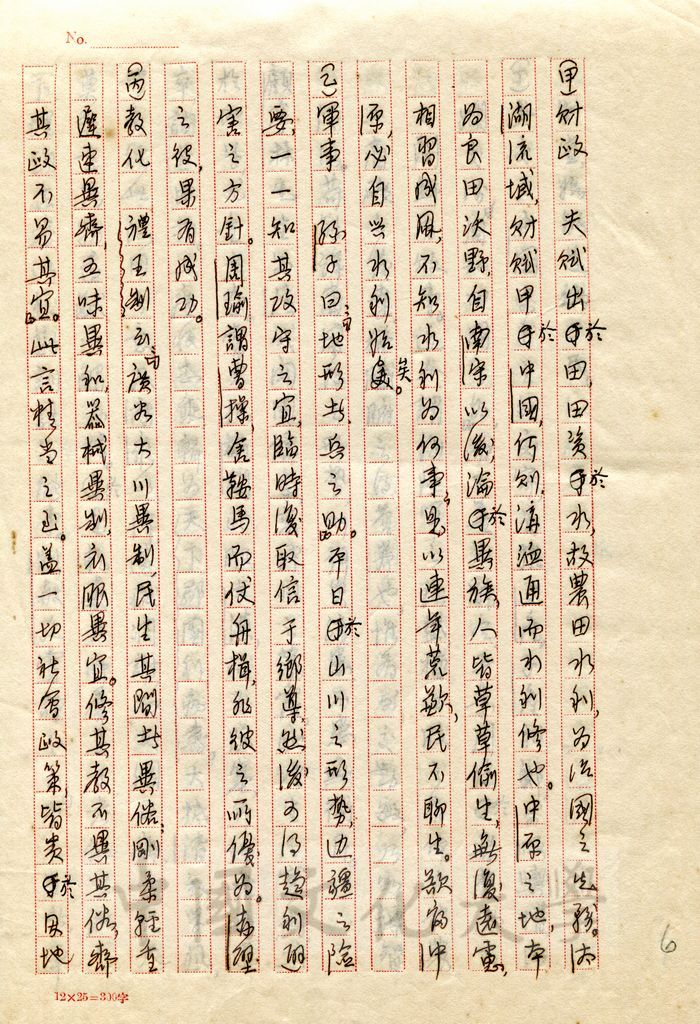 No.
(甲)財政 夫賦出於田，田資於水，故農田水利，為治國之先務。太
湖流域，財賦甲於中國，何則，溝洫通而水利修也。中原之地，本
為良田沃野，自南宋以後，淪於異族，人皆草草偷生，無復遠慮，
相習成風，不知水利為何事，是以連年荒歉，民不聊生。欲富中
原，必自興水利始矣。
(乙)軍事 孫子曰：「地形者，兵之助。」平日於山川之形勢，边疆之險
要，一一知其攻守之宜，臨時復取信于鄉導，然後可得趨利避
害之方針。周瑜謂曹操，舍鞍馬而仗舟楫，非彼之所優為。赤壁
之役，果有成功。
(丙)教化 禮王制云：「廣谷大川異制，民生其間者異俗，剛柔輕重
遲速異齊，五味異和，器械異制，衣服異宜。修其教不異其俗，齊
其政不易其宜。」此言精當之至。蓋一切社會政策，皆貴於因地
中國文化大學
6
12×25=300字